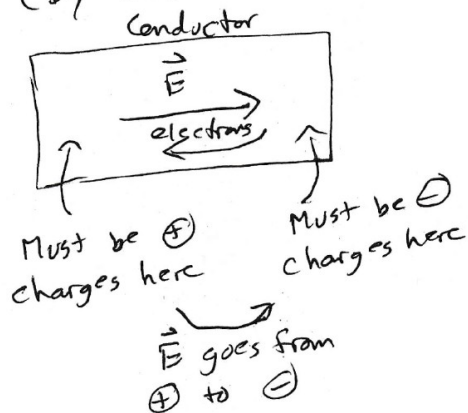 Conductor
E
electrons
Must be ⊕
charges here
Must be ⊖
charges here
E goes from
⊕ to ⊖